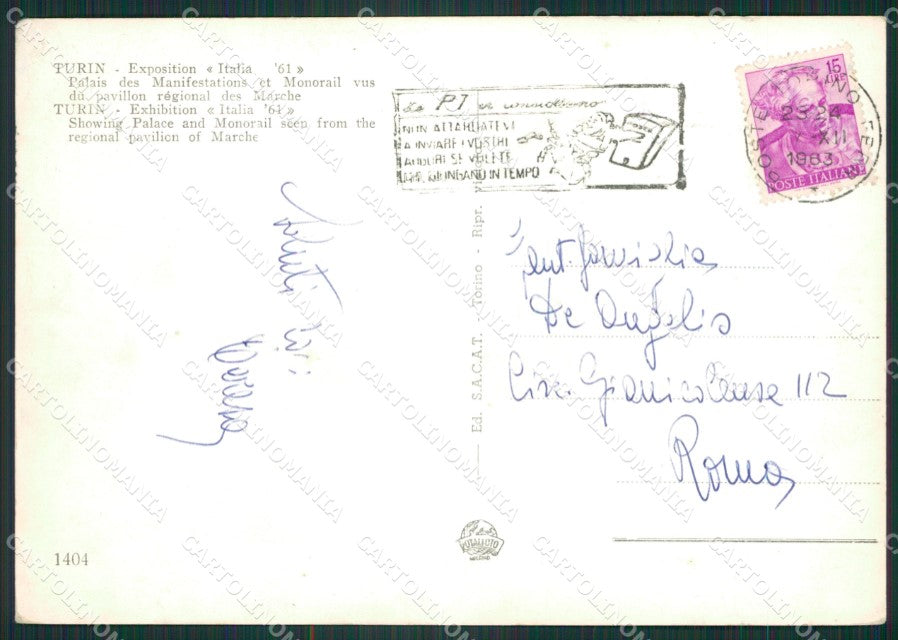 TURIN - Exposition « Italia '61 »
Palais des Manifestations et Monorail vus
du pavillon régional des Marche
TURIN - Exhibition « Italia '61 »
Showing Palace and Monorail seen from the
regional pavilion of Marche
Le PT vi
NON ATTARDATEVI
A INVIARE I VOSTRI
AUGURI SE VOLETE
CHE GIUNGANO IN TEMPO
15
POSTE TORINO FERR
23-24
XII
1963
POSTE ITALIANE
Saluti
Ed. S.A.C.A.T. - Torino - Ripr.
Gent. famiglia
De Angelis
Circ. Gianicolense 112
Roma
1404
CARTOLINOMANIA